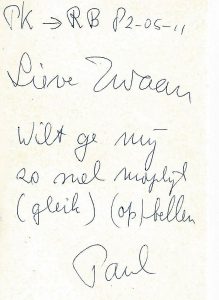 PK → RB 82-05-11
Lieve Zwaan
Wilt ge mij
zo snel mogelijk
(gleich) (op)bellen
Paul